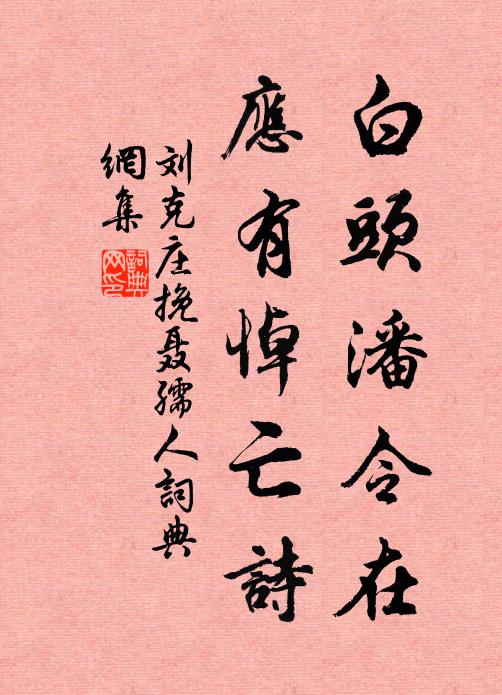 白頭潘令在
應有悼亡詩
刘克庄挽聂孺人詞典
網集
詞典
网印